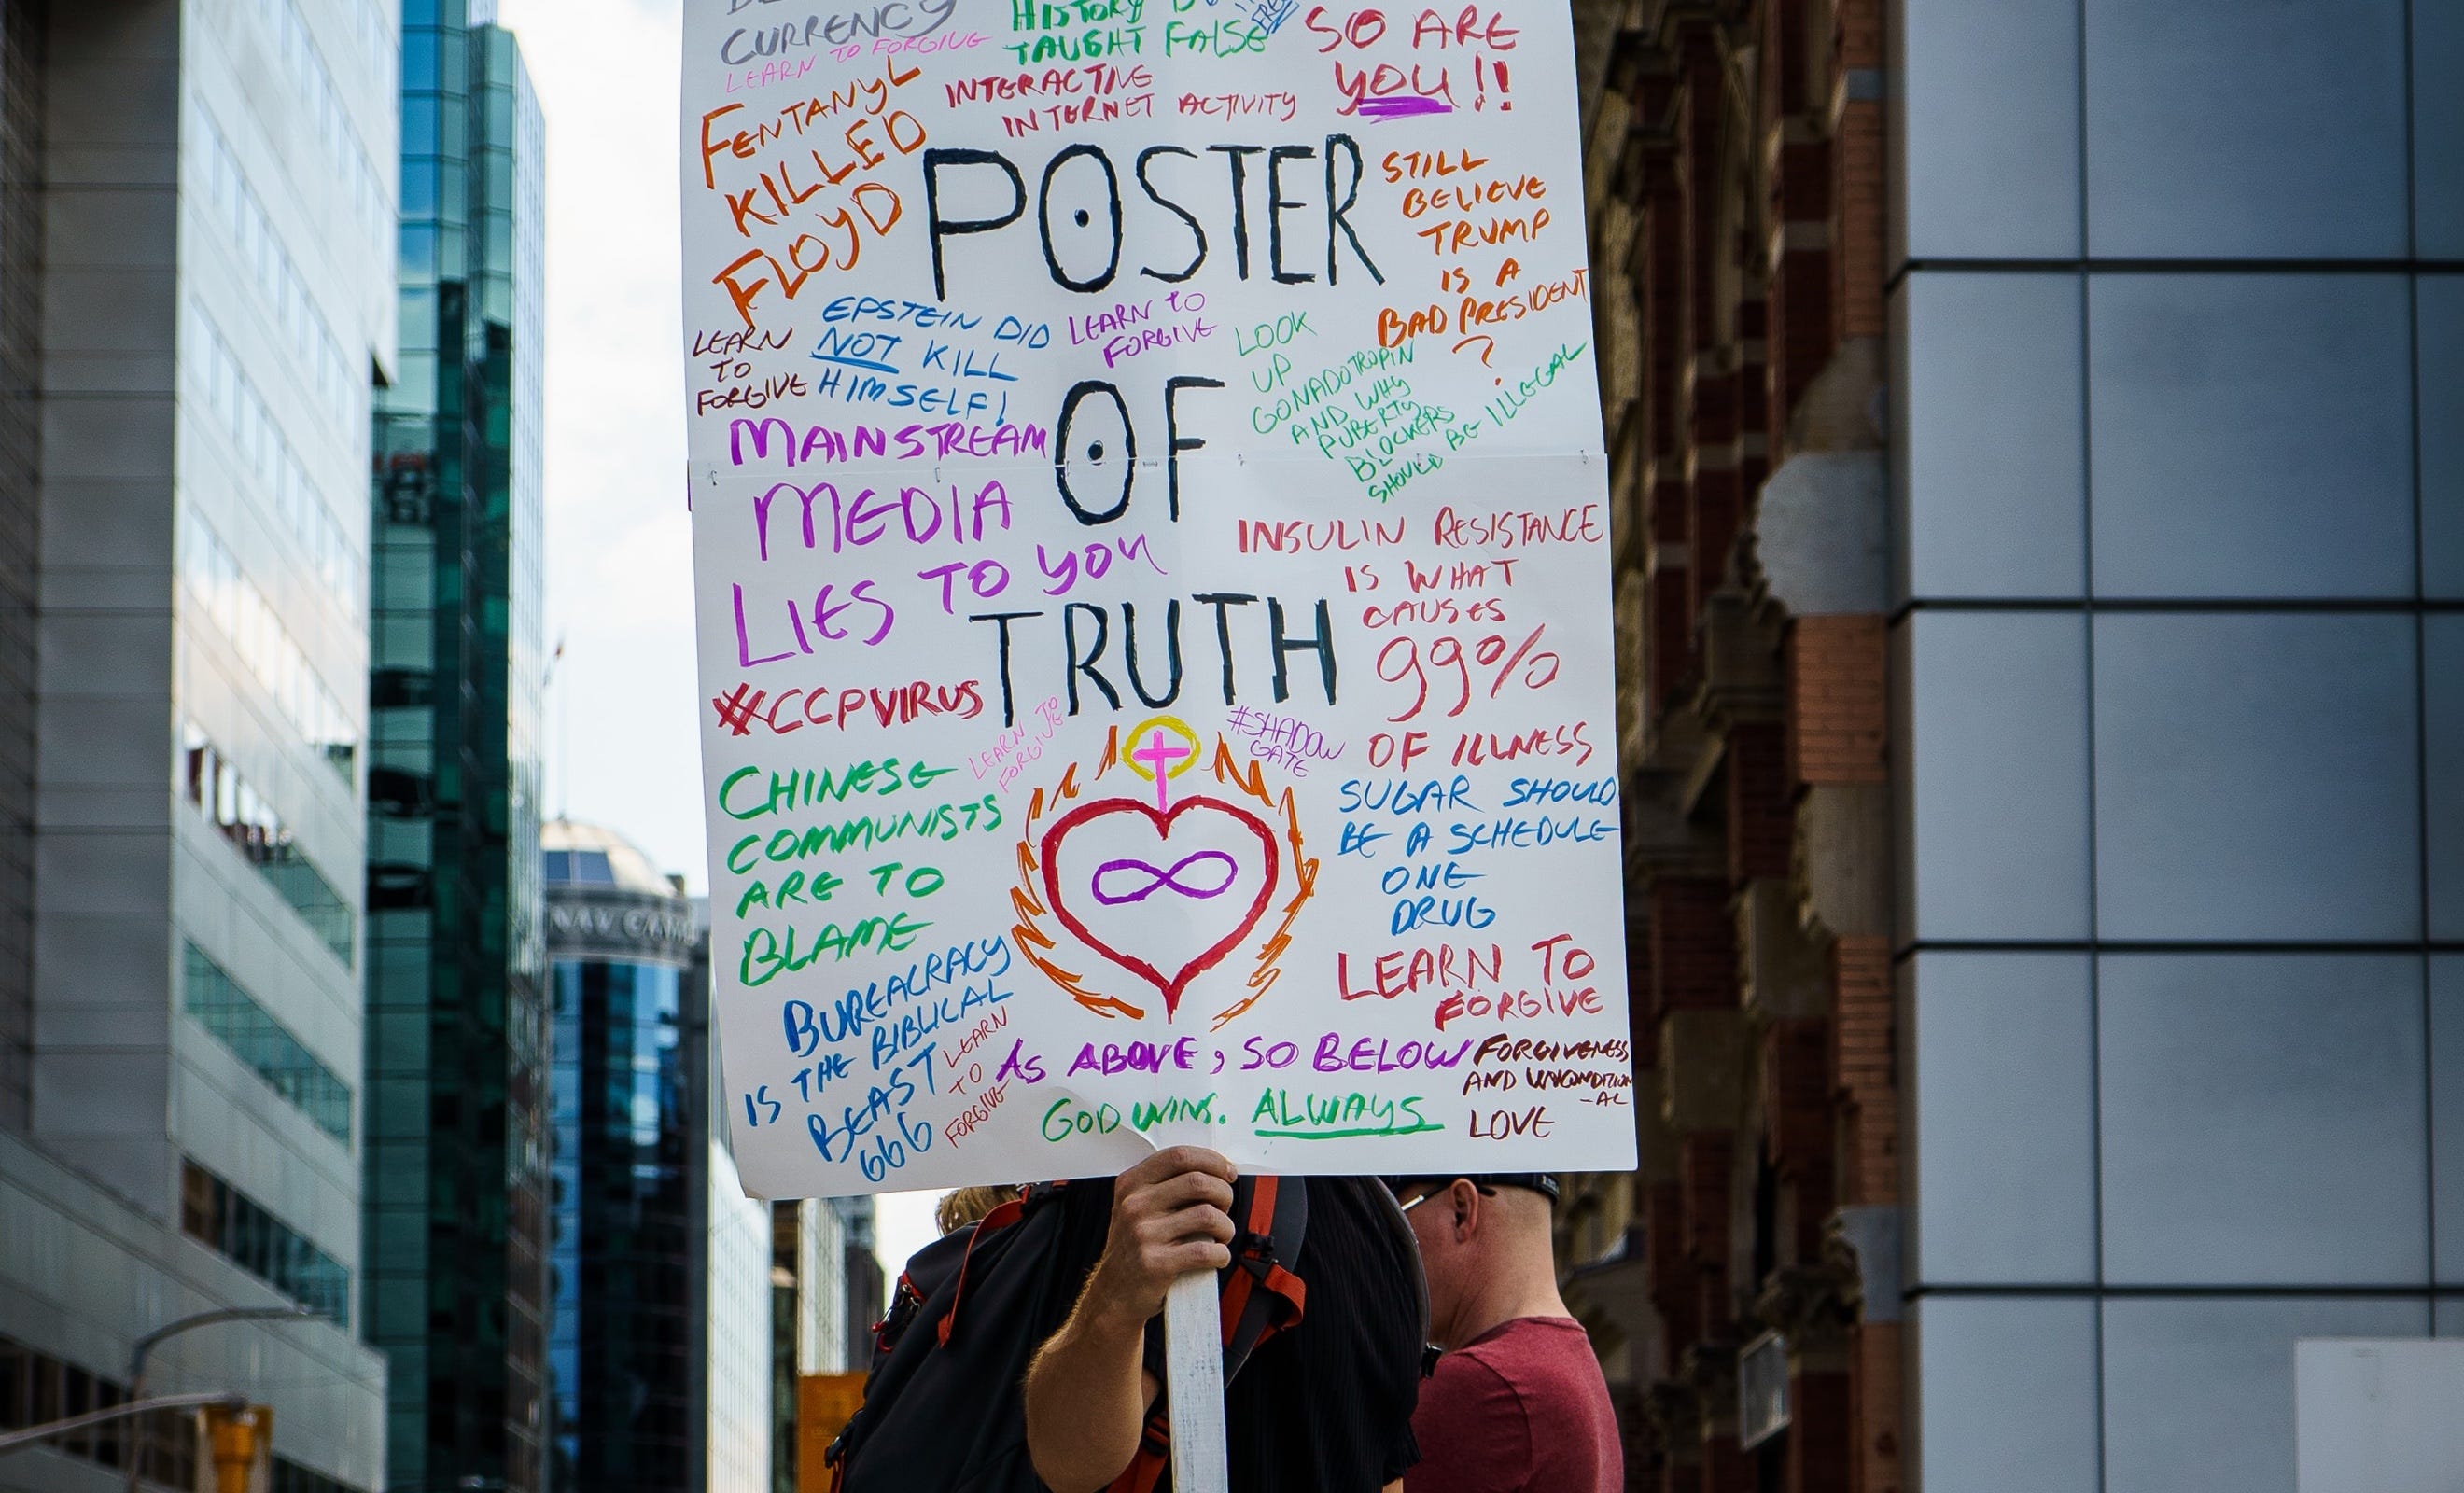 CURRENCY
LEARN TO FORGIVE
HISTORY
TAUGHT FALSE
SO ARE
YOU!!
FENTANYL
KILLED
FLOYD
INTERACTIVE
INTERNET ACTIVITY
POSTER
STILL
BELIEVE
TRUMP
IS A
BAD PRESIDENT
?
LEARN
TO
FORGIVE
EPSTEIN DID
NOT KILL
HIMSELF!
LEARN TO
FORGIVE
LOOK
UP
GONADOTROPIN
AND WHY
PUBERTY
BLOCKERS
SHOULD BE ILLEGAL
OF
MAINSTREAM
MEDIA
LIES TO YOU
INSULIN RESISTANCE
IS WHAT
CAUSES
99%
OF ILLNESS
TRUTH
#CCPVIRUS
LEARN TO
FORGIVE
#SHADOW
GATE
CHINESE
COMMUNISTS
ARE TO
BLAME
SUGAR SHOULD
BE A SCHEDULE
ONE
DRUG
BUREACRACY
IS THE BIBLICAL
BEAST
666
LEARN
TO
FORGIVE
LEARN TO
FORGIVE
AS ABOVE, SO BELOW
GOD WINS. ALWAYS
FORGIVENESS
AND UNCONDITION
-AL
LOVE